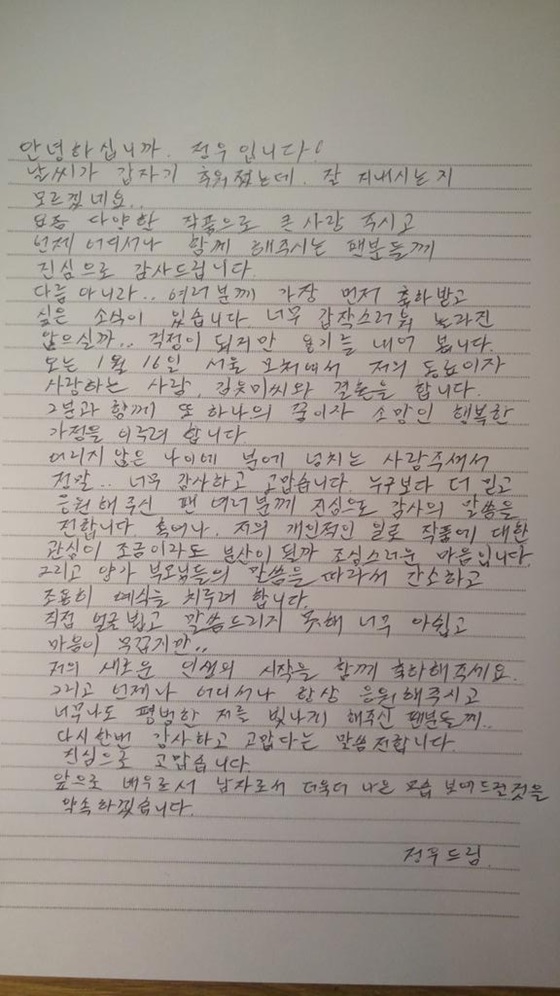 안녕하십니까. 정우입니다!
날씨가 갑자기 추워졌는데. 잘 지내시는지
모르겠네요..
요즘 다양한 작품으로 큰 사랑 주시고
언제 어디서나 함께 해주시는 팬분들께
진심으로 감사드립니다.
다름 아니라.. 여러분께 가장 먼저 축하받고
싶은 소식이 있습니다. 너무 갑작스러워 놀라진
않으실까.. 걱정이 되지만 용기를 내어 봅니다.
오는 1월 16일 서울 모처에서 저의 동료이자
사랑하는 사람, 김유미씨와 결혼을 합니다.
그분과 함께 또 하나의 꿈이자 소망인 행복한
가정을 이루려 합니다.
어리지 않은 나이에 분에 넘치는 사랑주셔서
정말.. 너무 감사하고 고맙습니다. 누구보다 더 믿고
응원해 주신 팬 여러분께 진심으로 감사의 말씀을
전합니다. 혹여나. 저의 개인적인 일로 작품에 대한
관심이 조금이라도 분산이 될까 조심스러운 마음입니다.
그리고 양가 부모님들의 말씀을 따라서 간소하고
조용히 예식을 치루려 합니다.
직접 얼굴 뵙고 말씀드리지 못해 너무 아쉽고
마음이 무겁지만..
저의 새로운 인생의 시작을 함께 축하해주세요.
그리고 언제나 어디서나 항상 응원해주시고
너무나도 평범한 저를 빛나게 해주신 팬분들께..
다시한번 감사하고 고맙다는 말씀전합니다.
진심으로 고맙습니다.
앞으로 배우로서 남자로서 더욱더 나은 모습 보여드릴것을
약속하겠습니다.
정우드림